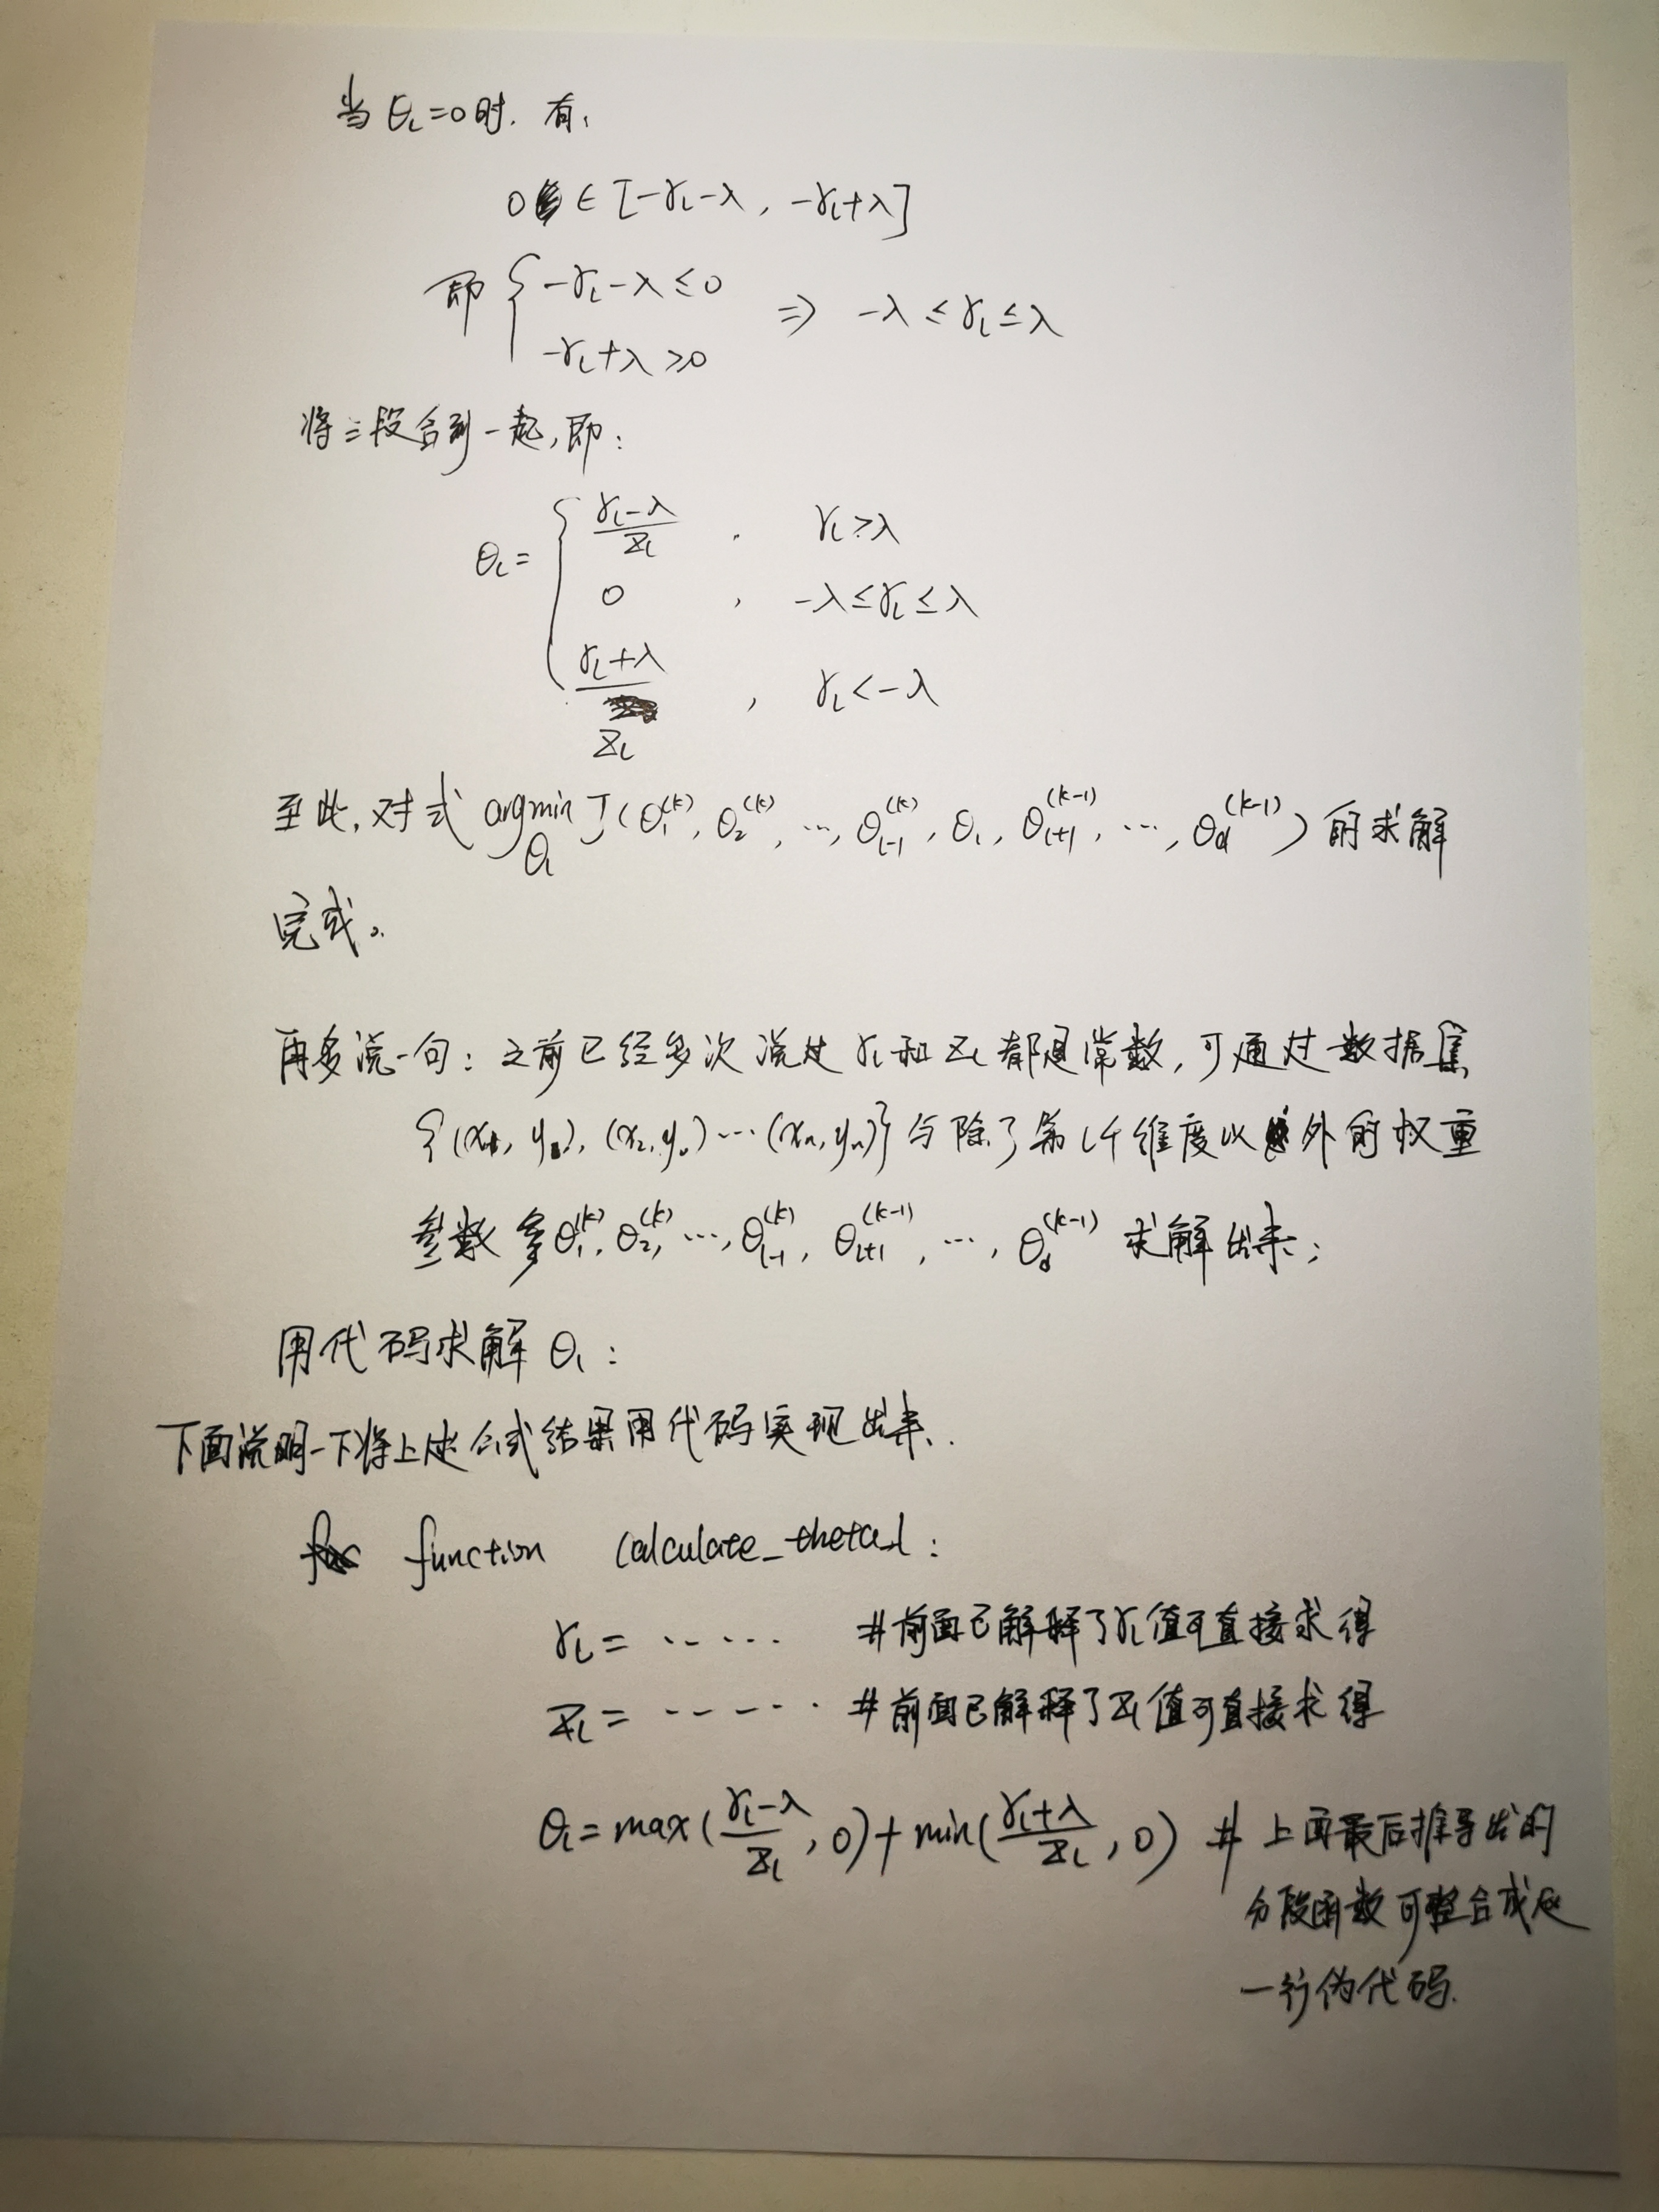 当 θₗ=0时. 有:
0 ∈ [-γₗ-λ, -γₗ+λ]
即 { -γₗ-λ ≤ 0
-γₗ+λ ≥ 0 ⇒ -λ ≤ γₗ ≤ λ
将三段合到一起,即:
θₗ = { (γₗ-λ)/zₗ , γₗ>λ
0 , -λ≤γₗ≤λ
(γₗ+λ)/zₗ , γₗ<-λ
至此,对于式 argmin_θₗ J(θ₁^(k), θ₂^(k), …, θₗ₋₁^(k), θₗ, θₗ₊₁^(k-1), …, θ_d^(k-1)) 的求解
完成。
再多说一句: 之前已经多次说过 γₗ和 zₗ 都是常数,可通过数据集
{(x₁, y₁), (x₂, y₂) … (xₙ, yₙ)} 与除了第 l 个维度以外的权重
参数 θ₁^(k), θ₂^(k), …, θₗ₋₁^(k), θₗ₊₁^(k-1), …, θ_d^(k-1) 求解出来;
用代码求解 θₗ:
下面说明一下将上述公式结果用代码实现出来.
function calculate_theta_l:
γₗ = ...... #前面已解释了γₗ值可直接求得
zₗ = ...... #前面已解释了zₗ值可直接求得
θₗ = max((γₗ-λ)/zₗ, 0) + min((γₗ+λ)/zₗ, 0) # 上面最后推导出的
分段函数可整合成这
一行伪代码.